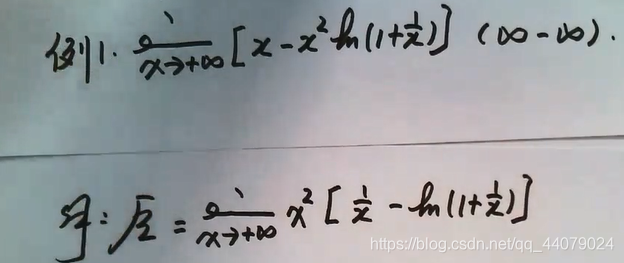 例1. lim x→+∞ [x - x² ln(1+1/x)] (∞-∞).
解: 原 = lim x→+∞ x² [1/x - ln(1+1/x)]
https://blog.csdn.net/qq_44079024